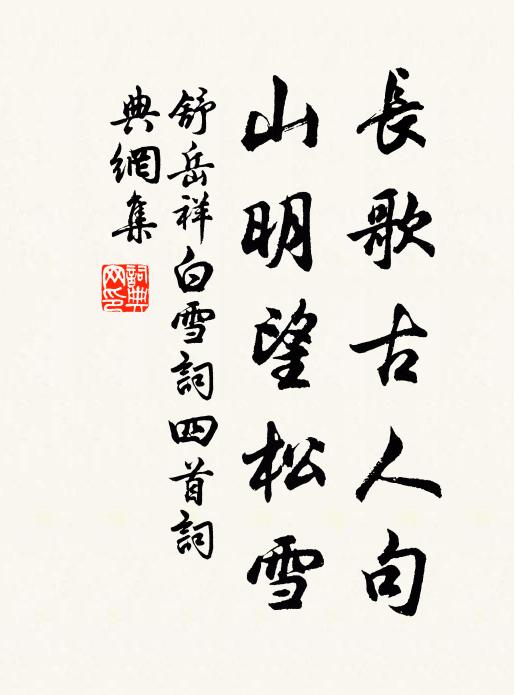 長歌古人句
山明望松雪
舒岳祥白雪詞四首詞
典網集
詞典网印